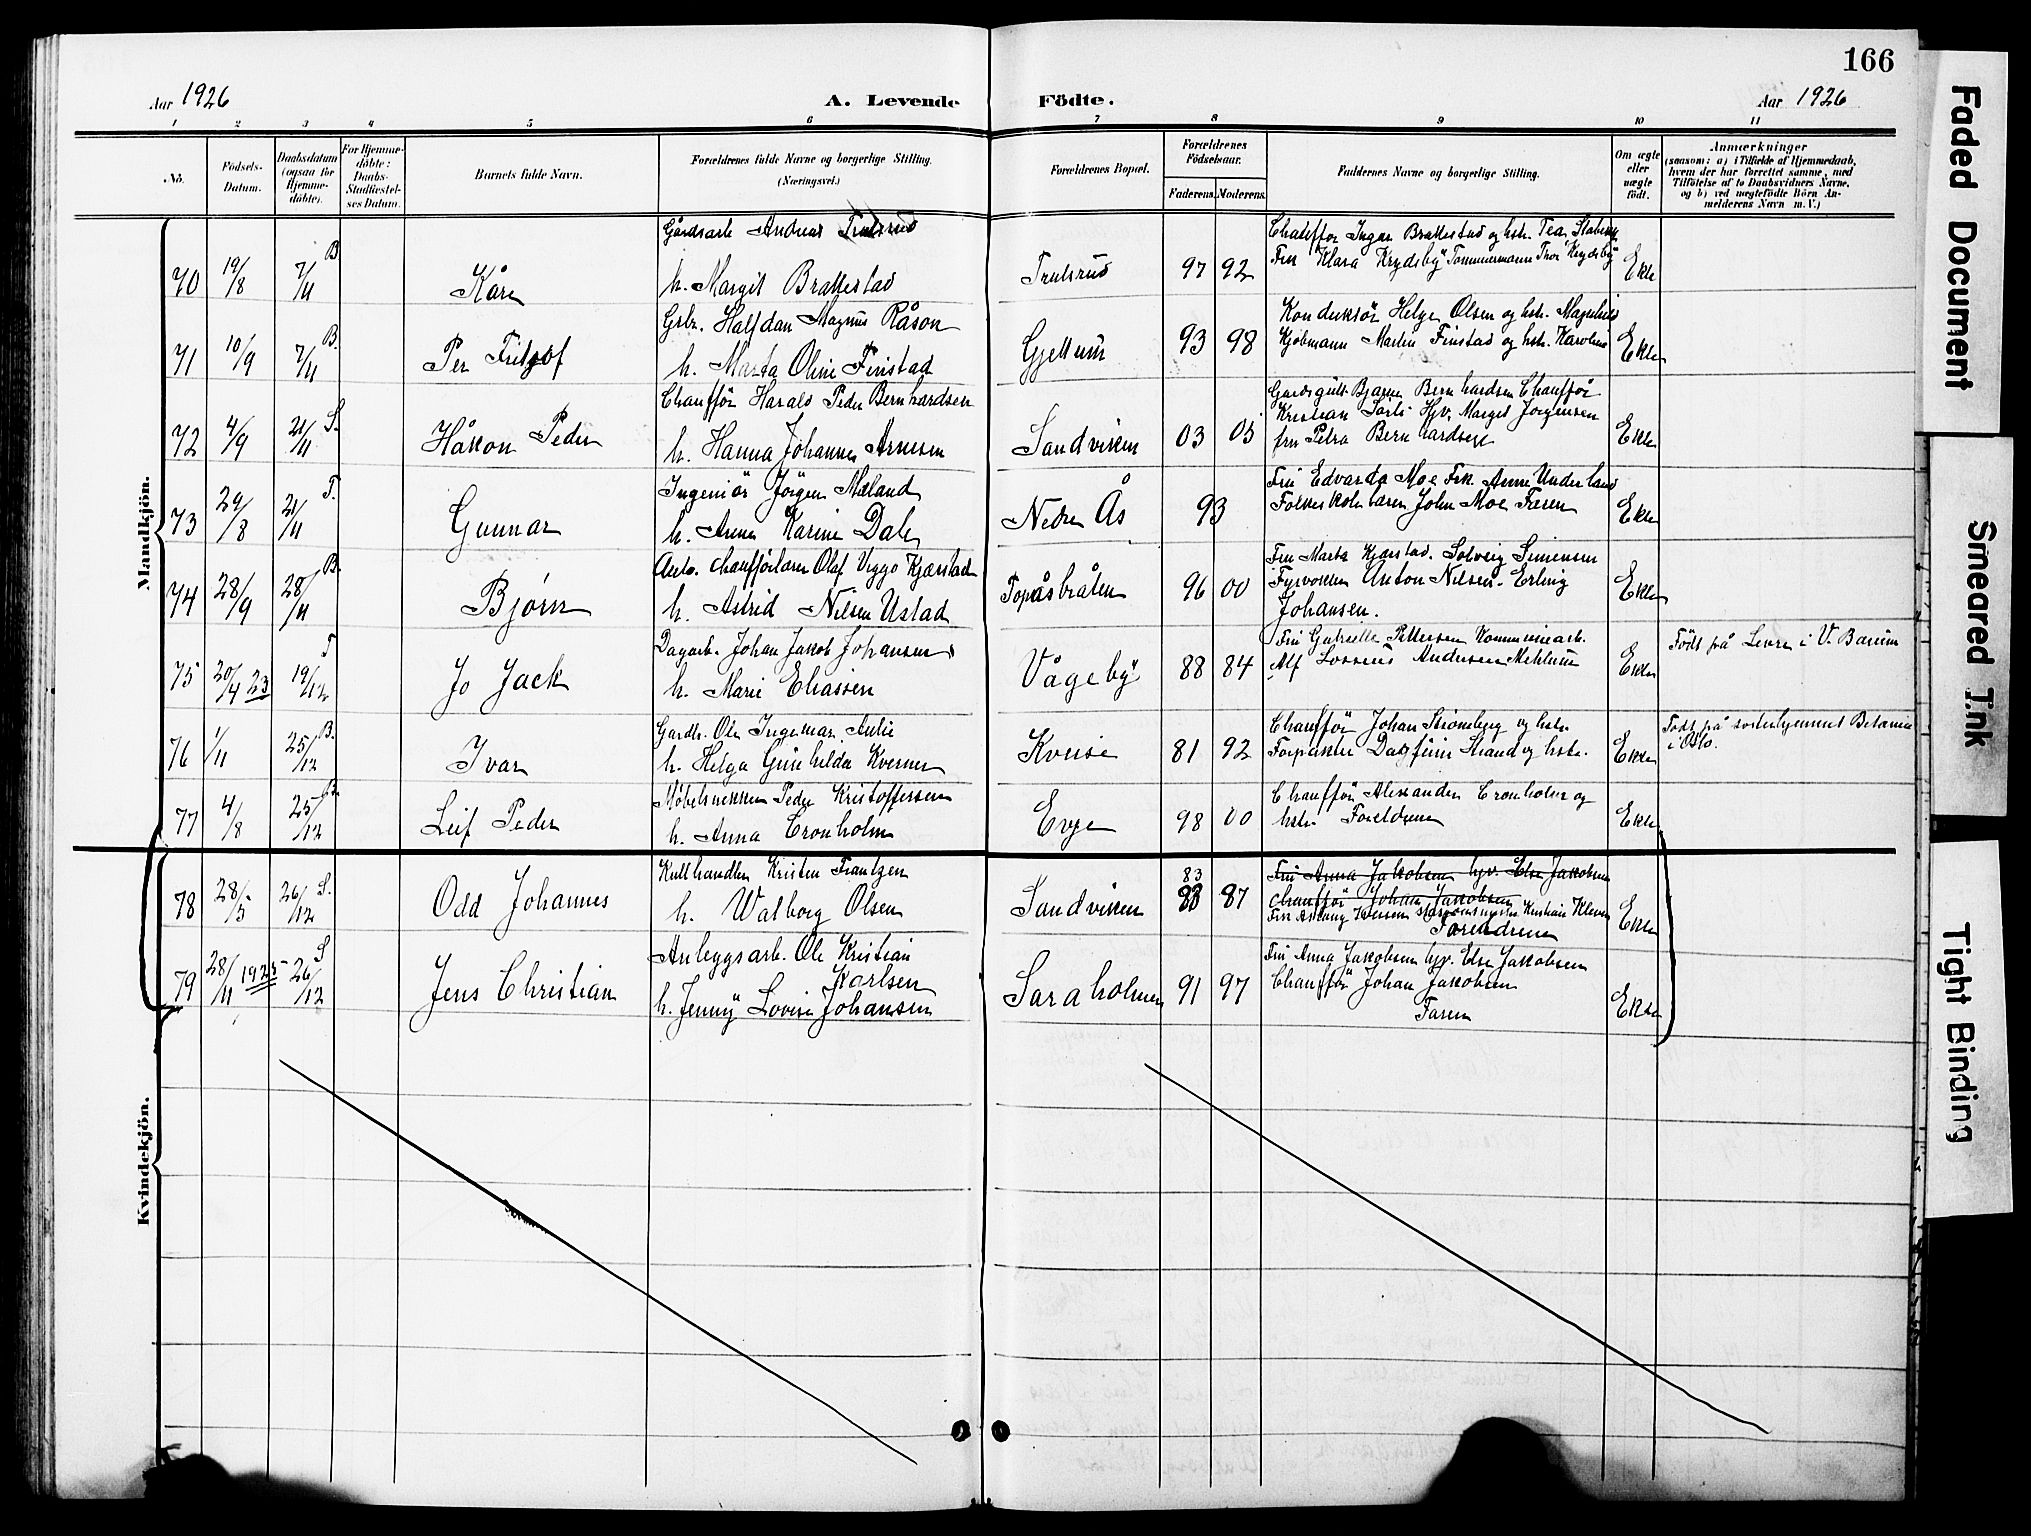 166
Aar 1926
A. Levende Födte.
Aar 1926
1 2 3 4 5 6 7 8 8 9 10 11
No.
Födsels-
Datum.
Daabsdatum
(ogsaa for
Hjemme-
döbte).
For Hjemme-
döbte:
Daabs-
Stadfæstel-
ses Datum.
Barnets fulde Navn.
Forældrenes fulde Navne og borgerlige Stilling.
(Næringsvei.)
Forældrenes Bopæl.
Forældrenes
Födselsaar.
Faderens. Moderens.
Faddernes Navne og borgerlige Stilling.
Om ægte
eller
uægte
födt.
Anmærkninger
(saasom: a) i Tilfælde af Hjemmedaab,
hvem der har forrettet samme, med
Tilföielse af to Daabsvidners Navne,
og b) ved uægtefödte Börn An-
melderens Navn m. V.)
Mandkjön.
Gårdsarb Andreas Trulsrud
70 19/8 7/11 B Kåre h. Margit Brattestad Trulsrud 97 92 Ekte
Chauffør Ingar Brattestad og hstr. Tea
Fru Klara Krydsby Tømmermann Thor Krydsby
Grbr. Halfdan Magnus Råson
71 10/9 7/11 B. Per Fritjof h. Marta Oline Finstad Gjellum 93 98 Ekte
Konduktør Helge Olsen og hstr. Magnhild
Kjøbmann Martin Finstad og hstr. Karoline
Chauffør Harald Peder Bernhardsen
72 4/9 21/11 S. Håkon Peder h. Hanna Johannes Arnesen Sandviken 03 05 Ekte
Gardsgutt Bjarne Bernhardsen Chauffør
Kristian Sørli Hjv. Margit Jørgensen
fru Petra Bernhardsen
Ingeniør Jörgen Mæland
73 29/8 21/11 T. Gunnar h. Anna Karine Dale Nedre Ås 93 Ekte
Fru Edvarda Moe Frk. Anne Underland
Folkeskolelærer John Moe Faren
Auto. chaufførlærer Olaf Viggo Kjærstad
74 28/9 28/11 B. Bjørn h. Astrid Nilsen Ustad Topåsbråten 96 00 Ekte
Fru Marta Kjærstad. Solveig Simensen
Fyrvokter Anton Nilsen. Erling
Johansen.
Dagarb. Johan Jakob Johansen
75 20/4 23 19/12 T Jo Jack h. Marie Eliassen Vågeby 88 84 Ekte
Fru Gabrielle Pettersen Kommunearb.
Alf Andersen Mehlum
Födt på Levre i V. Bærum
Gardbr. Ole Ingemar Aulie
76 1/11 25/12 B. Ivar h. Helga Gunhilda Kverner Kveise 81 92 Ekte
Chauffør Johan Strömberg og hstr.
Forpakter Dagfinn Strand og hstr.
Födt på söstrehjemmet Betania
i Oslo.
Møbelsnekker Peder Kristoffersen
77 4/8 25/12 B. Leif Peder h. Anna Cronholm Evje 98 00 Ekte
Chauffør Alexander Cronholm og
hstr. Foreldrene
Kullhandler Kristen Frantzen
78 28/5 26/12 S. Odd Johannes h. Walborg Olsen Sandviken 83 87 Ekte
Fru Anna Jakobsen hjv. Else Jakobsen
Chauffør Johan Jakobsen
Foreldrene
Anleggsarb. Ole Kristian
Karlsen
79 28/11 1925 26/12 S Jens Christian h. Jenny Lovise Johansen Saraholmen 91 97 Ekte
Fru Anna Jakobsen hjv. Else Jakobsen
Chauffør Johan Jakobsen
Faren
Kvindekjön.
Faded Document
Smeared Ink
Tight Binding